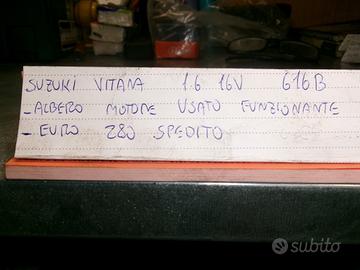 SUZUKI VITARA 1.6 16V G16B
-ALBERO MOTORE USATO FUNZIONANTE
-EURO 280 SPEDITO
subito